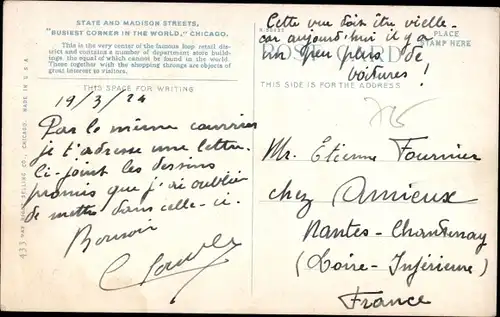 STATE AND MADISON STREETS,
"BUSIEST CORNER IN THE WORLD," CHICAGO.
This is the very center of the famous loop retail dis-
trict and contains a number of department store build-
ings, the equal of which cannot be found in the world.
These together with the shopping throngs are objects of
great interest to visitors.
THIS SPACE FOR WRITING
19/3/24
Par le même courrier
je t'adresse une lettre.
Ci-joint les dessins
promis que j'ai oublié
de mettre dans celle-ci.
Bonsoir
433 CO., CHICAGO. MADE IN U.S.A.
Cette vue doit être vieille
car aujourd'hui il y a
un peu plus de
voitures !
POST CARD
PLACE
STAMP HERE
THIS SIDE IS FOR THE ADDRESS
Mr. Etienne Fournier
chez Amieux
Nantes-Chantenay
(Loire-Inférieure)
France